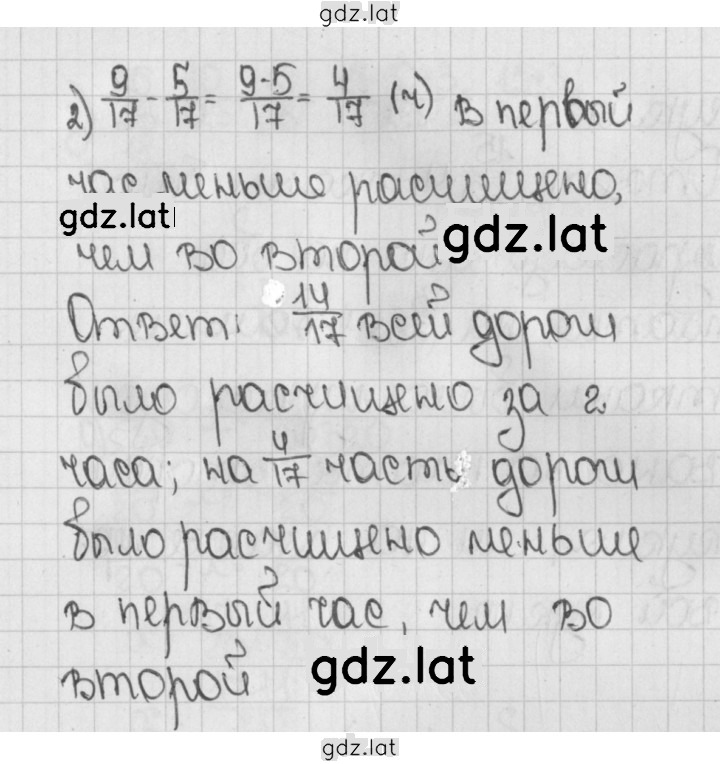 gdz.lat
2) 9/17 - 5/17 = 9-5/17 = 4/17 (ч) в первый
час меньше расчищено,
gdz.lat
чем во второй
gdz.lat
Ответ: 14/17 всей дороги
было расчищено за 2
часа; на 4/17 часть дороги
было расчищено меньше
в первый час, чем во
второй
gdz.lat
gdz.lat